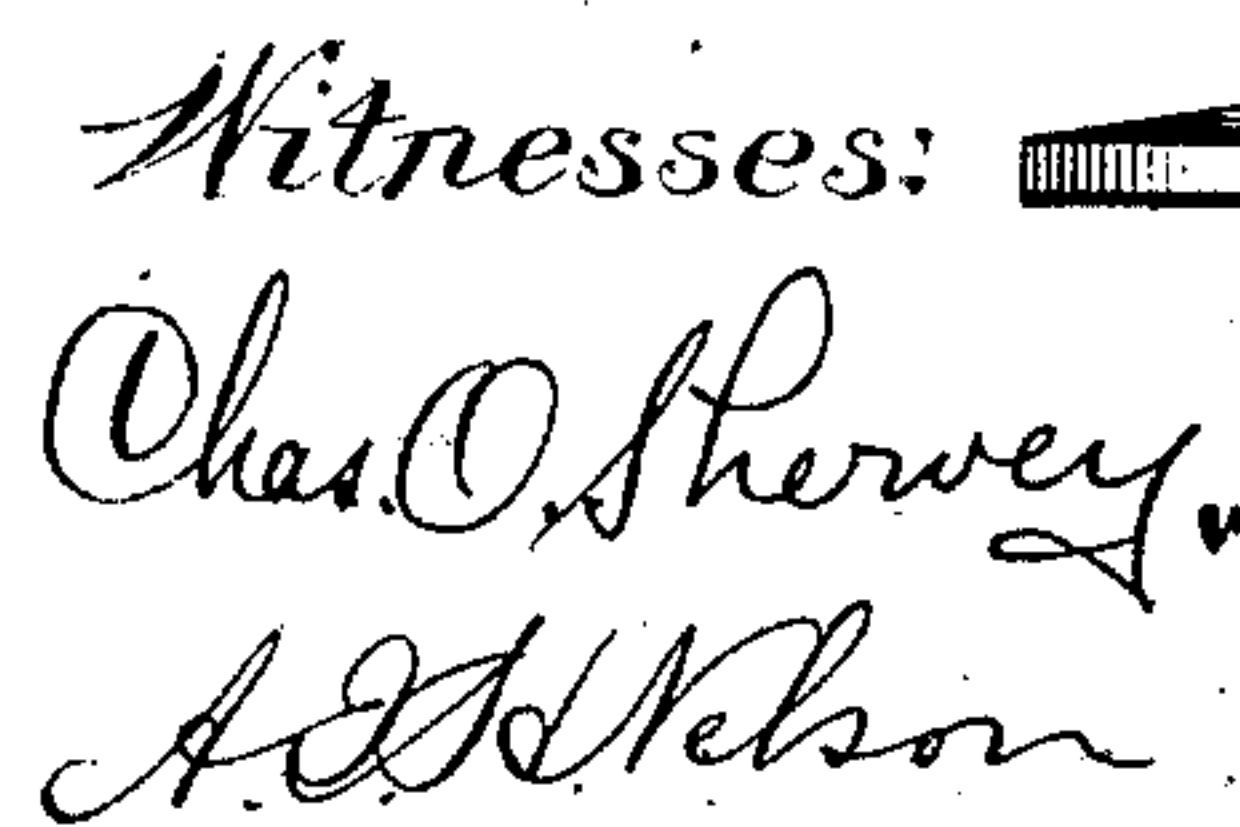 Witnesses:
Chas. O. Shervey
Nelson